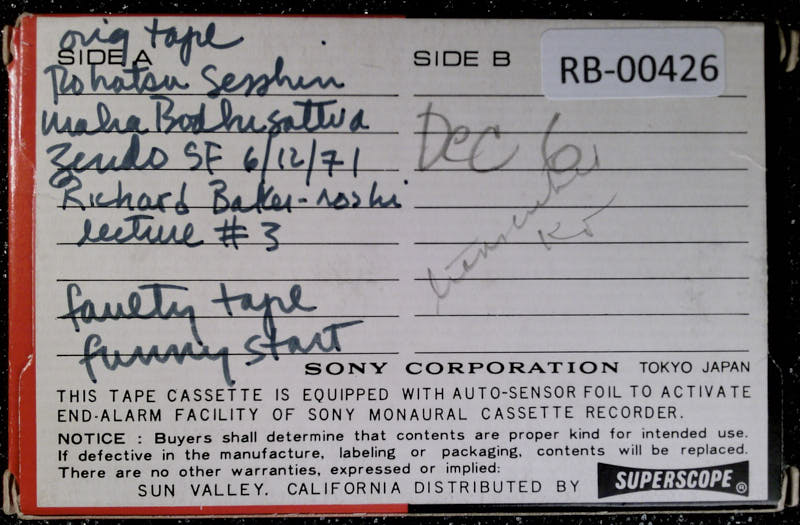 orig tape
SIDE A
Rohatsu Sesshin
Maha Bodhisattva
Zendo SF 6/12/71
Richard Baker-roshi
lecture #3
faulty tape
funny start
SIDE B
RB-00426
Dec 6
transcribed
KT
SONY CORPORATION TOKYO JAPAN
THIS TAPE CASSETTE IS EQUIPPED WITH AUTO-SENSOR FOIL TO ACTIVATE
END-ALARM FACILITY OF SONY MONAURAL CASSETTE RECORDER.
NOTICE : Buyers shall determine that contents are proper kind for intended use.
If defective in the manufacture, labeling or packaging, contents will be replaced.
There are no other warranties, expressed or implied:
SUN VALLEY. CALIFORNIA DISTRIBUTED BY SUPERSCOPE®